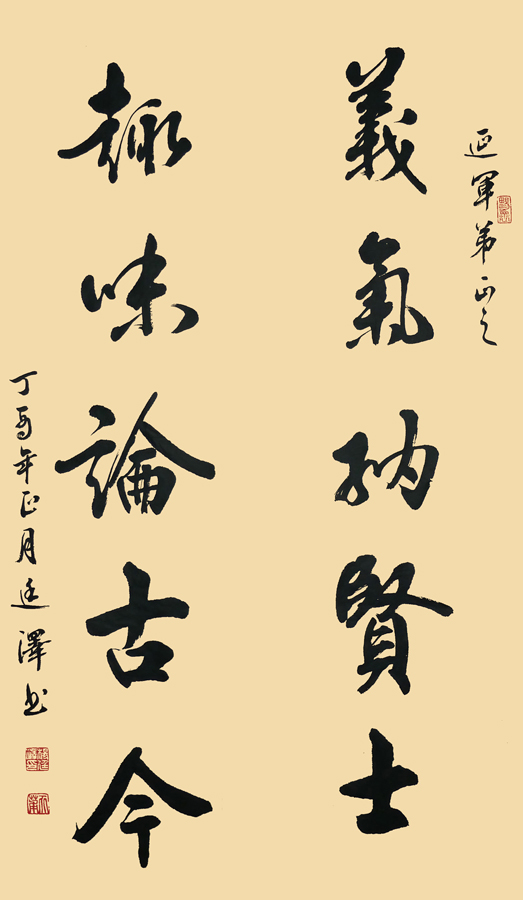 延軍弟正之
義氣納賢士
趣味論古今
丁酉年正月廷澤书